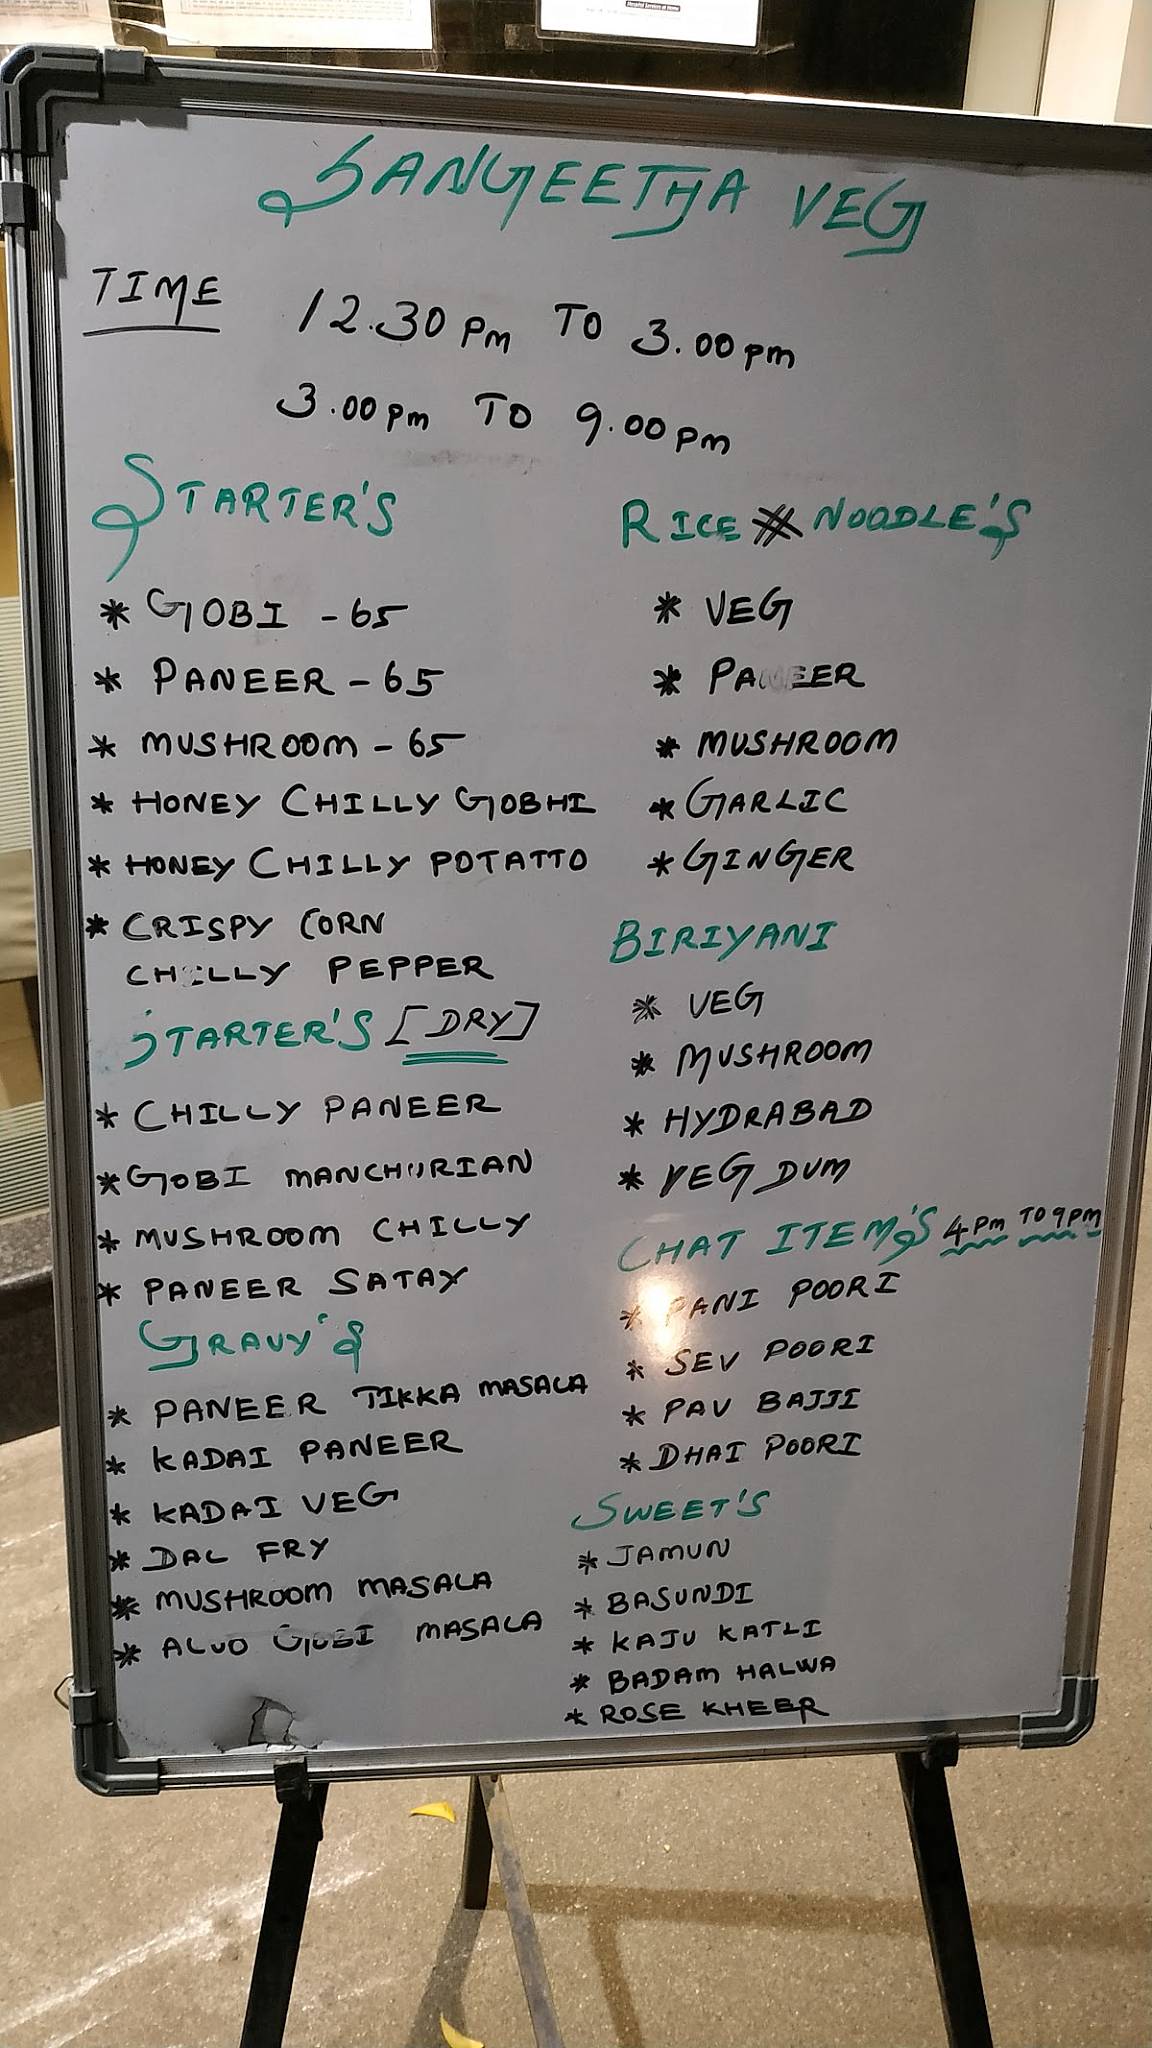 SANGEETHA VEG
TIME 12.30 Pm TO 3.00 pm
3.00 pm TO 9.00 pm
STARTER'S
* GOBI - 65
* PANEER - 65
* MUSHROOM - 65
* HONEY CHILLY GOBHI
* HONEY CHILLY POTATTO
* CRISPY CORN
CHILLY PEPPER
STARTER'S [DRY]
* CHILLY PANEER
* GOBI MANCHURIAN
* MUSHROOM CHILLY
* PANEER SATAY
GRAVY'S
* PANEER TIKKA MASALA
* KADAI PANEER
* KADAI VEG
* DAL FRY
* MUSHROOM MASALA
* ALUO GOBI MASALA
RICE # NOODLE'S
* VEG
* PANEER
* MUSHROOM
* GARLIC
* GINGER
BIRIYANI
* VEG
* MUSHROOM
* HYDRABAD
* VEG DUM
CHAT ITEM'S 4 Pm TO 9 Pm
* PANI POORI
* SEV POORI
* PAV BAJJI
* DHAI POORI
SWEET'S
* JAMUN
* BASUNDI
* KAJU KATLI
* BADAM HALWA
* ROSE KHEER